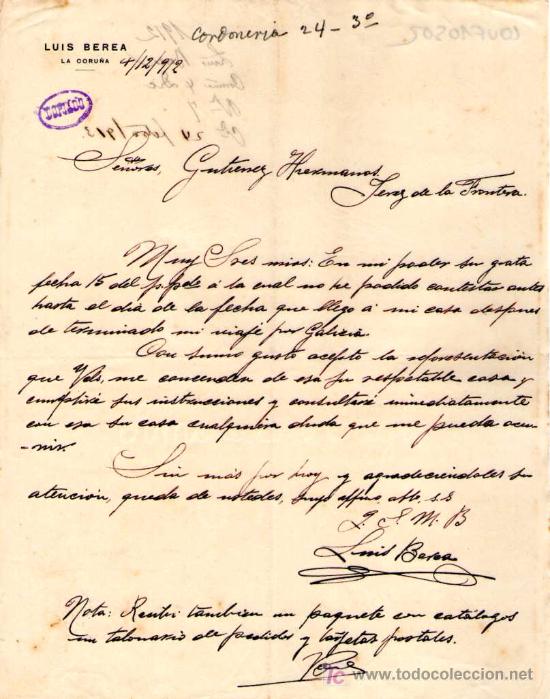 Cordoneria 24 - 3º
LUIS BEREA
LA CORUÑA
4/12/912
COPIADO
Señores, Gutierrez Hermanos.
Jerez de la Frontera.
Muy Sres mios: En mi poder su grata
fecha 15 del p.pdo á la cual no he podido contestar antes
hasta el dia de la fecha que llego á mi casa despues
de terminado mi viaje por Galicia.
Con sumo gusto acepto la representación
que Vds, me conceden de esa su respetable casa y
cumpliré sus instrucciones y consultaré inmediatamente
con esa su casa cualquiera duda que me pueda ocu-
-rrir.
Sin más por hoy y agradeciendoles su
atención, queda de ustedes, suyo affmo atto. s.s
Q. S. M. B
Luis Berea
Nota: Recibi tambien un paquete con catálogos
un talonario de pedidos y tarjetas postales.
tc www.todocoleccion.net